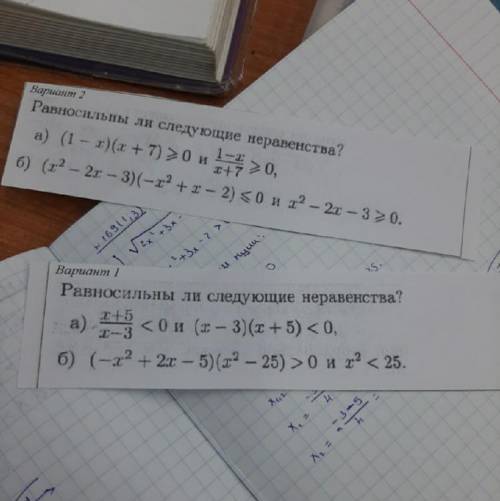 Вариант 2
Равносильны ли следующие неравенства?
а) (1 − x)(x + 7) ⩾ 0 и \frac{1−x}{x+7} ⩾ 0,
б) (x² − 2x − 3)(−x² + x − 2) ⩽ 0 и x² − 2x − 3 ⩾ 0.
Вариант 1
Равносильны ли следующие неравенства?
а) \frac{x+5}{x−3} < 0 и (x − 3)(x + 5) < 0,
б) (−x² + 2x − 5)(x² − 25) > 0 и x² < 25.